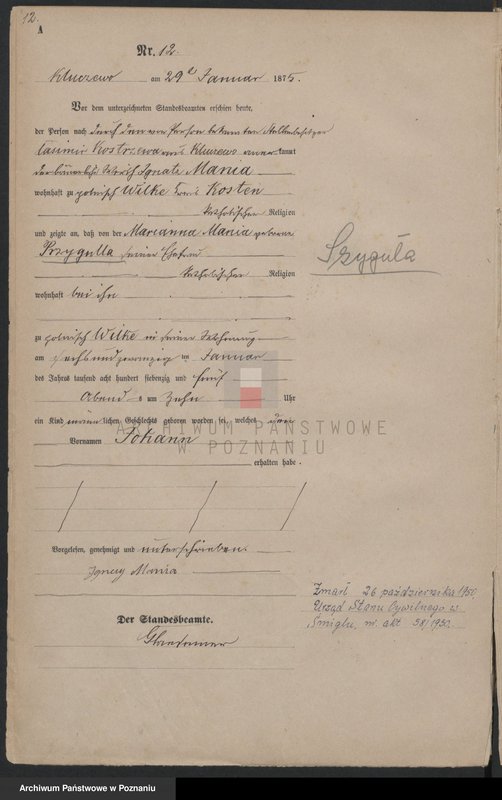 12.
A
Nr. 12.
Kluczewo am 29t Januar 1875.
Vor dem unterzeichneten Standesbeamten erschien heute,
der Person nach durch den von Person bekannten
Casimir Kostrzewa aus Kluczewo anerkannt
Ignatz Mania
wohnhaft zu polnisch Wilke Kreis Kosten
katholischer Religion
und zeigte an, daß von der Marianna Mania geborene
Przygulla seiner Ehefrau
katholischer Religion
wohnhaft bei ihm
zu polnisch Wilke in seiner Wohnung
am sechsundzwanzig ten Januar
des Jahres tausend acht hundert siebenzig und fünf
Abend s um Zehn Uhr
ein Kind männlichen Geschlechts geboren worden sei, welches den
Vornamen Johann
erhalten habe.
Vorgelesen, genehmigt und unterschrieben.
Ignacy Mania
Der Standesbeamte.
Szyguła
Zmarł 26 października 1950
Urząd Stanu Cywilnego w
Śmiglu, nr. akt 58/1950.
ARCHIWUM PAŃSTWOWE
W POZNANIU
Archiwum Państwowe w Poznaniu